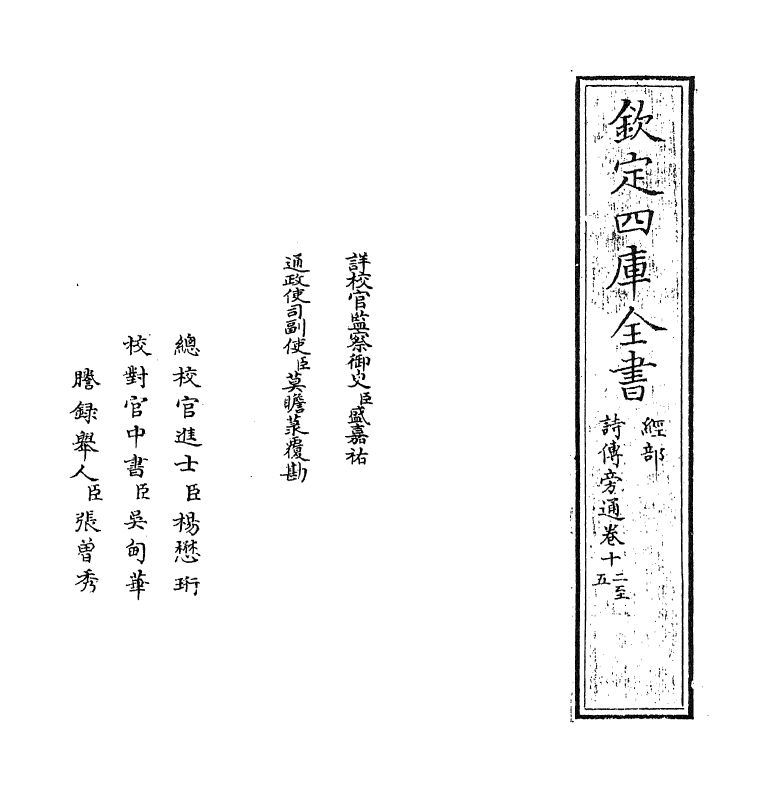 欽定四庫全書
經部
詩傳旁通卷十二至五
詳校官監察御史臣盛嘉祐
通政使司副使臣莫瞻菉覆勘
總校官進士臣楊懋珩
校對官中書臣吳甸華
謄録舉人臣張曾秀